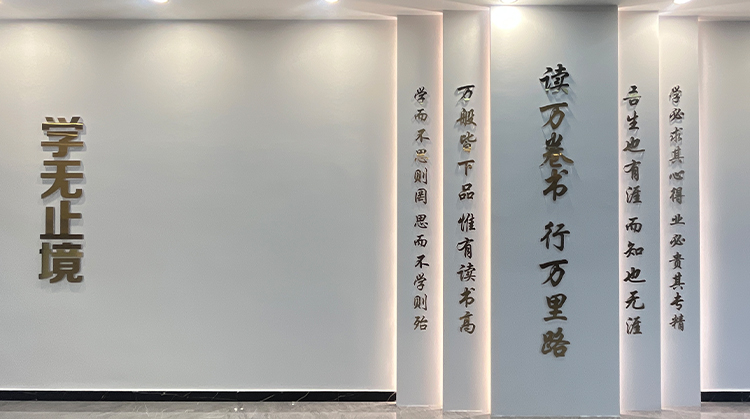 学无止境
学而不思则罔 思而不学则殆
万般皆下品 惟有读书高
读万卷书 行万里路
吾生也有涯 而知也无涯
学必求其心得 业必贵其专精